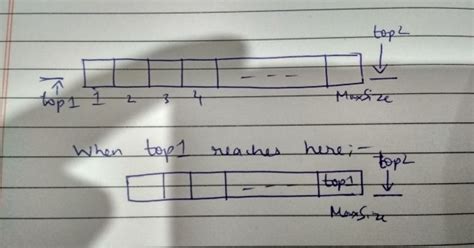 top2
top1 1 2 3 4 - - - MaxSize
When top1 reaches here;-
top2
- - - top1
MaxSize